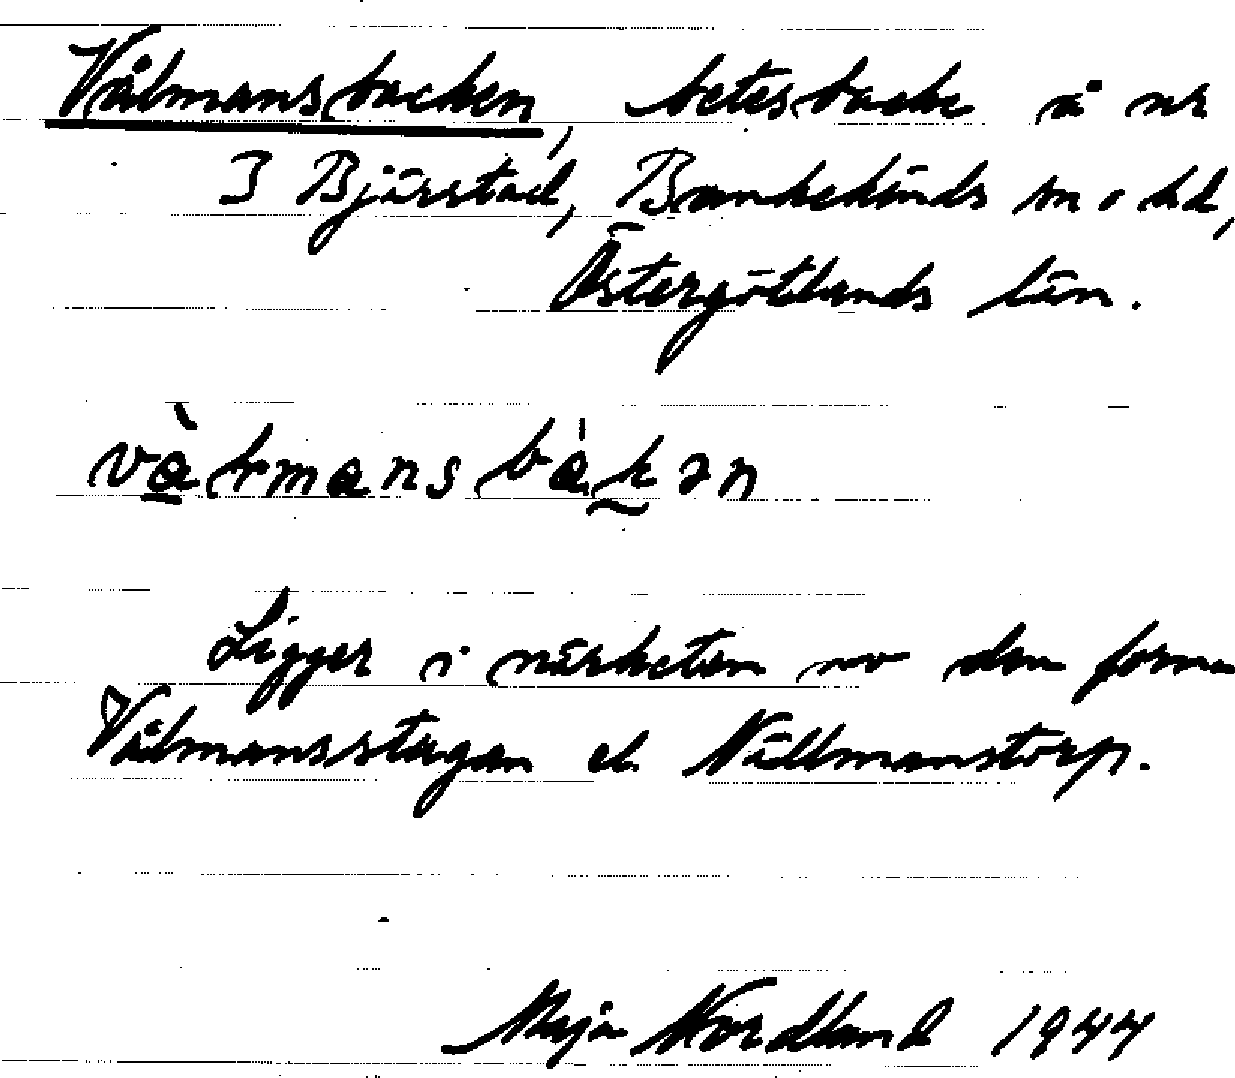 Vålmansbacken, betesbacke å nr
3 Bjärstad, Bankekinds sn o hd,
Östergötlands län.
Ligger i närheten av den forna
Vålmansstugan el. Nillmanstorp.
Maja Nordlund 1944